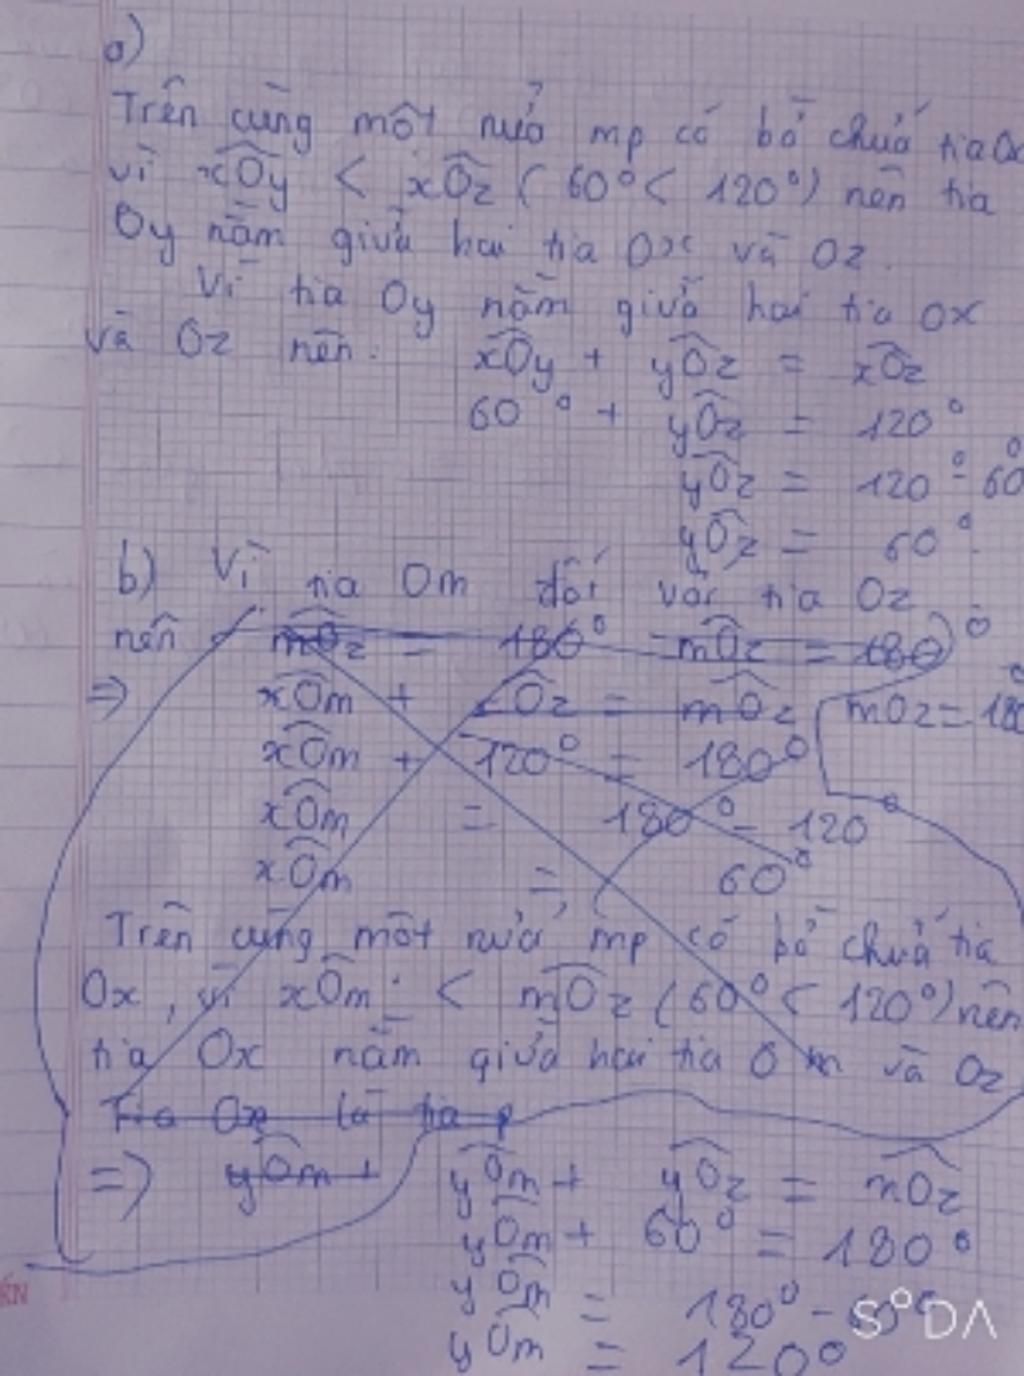 a)
Trên cùng một nửa mp có bờ chứa tia Ox
vì xOy < xOz ( 60° < 120° ) nên tia
Oy nằm giữa hai tia Ox và Oz.
Vì tia Oy nằm giữa hai tia Ox
và Oz nên: xOy + yOz = xOz
60° + yOz = 120°
yOz = 120° - 60°
yOz = 60°
b) Vì tia Om đối với tia Oz
nên mOz = 180° mOz = 180°
=> xOm + xOz = mOz mOz = 180°
xOm + 120° = 180°
xOm = 180° - 120°
xOm = 60°
Trên cùng một nửa mp có bờ chứa tia
Ox, vì xOm < mOz ( 60° < 120° ) nên
tia Ox nằm giữa hai tia Om và Oz
Tia Ox là tia p
=> yOm + yOm + yOz = mOz
yOm + 60° = 180°
yOm = 180° - 60°
yOm = 120°
ẾN
SODA